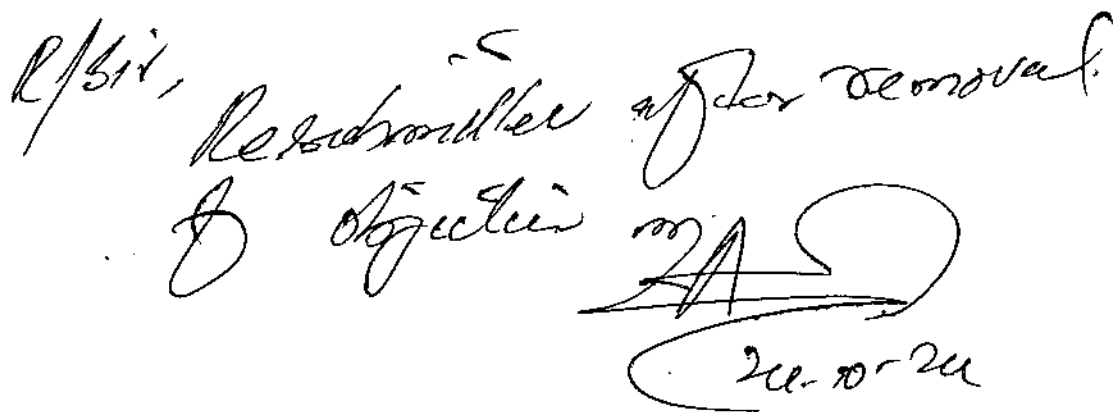 R/Sir,
Resubmitted after removal
of objection
24-10-24